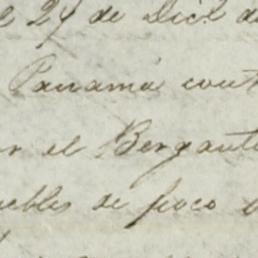 el 24 de Dice de
Panamá cont
or el Berganti
uebles de poco v